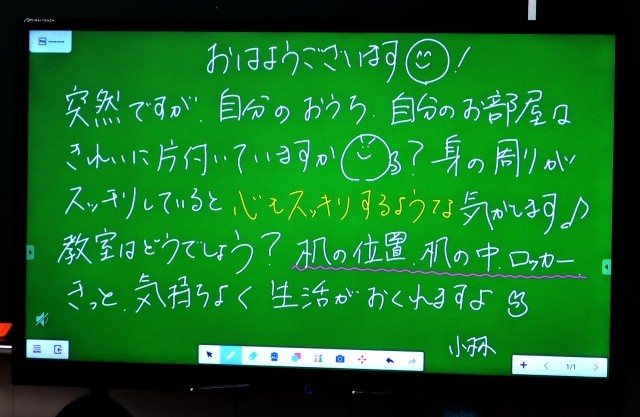 おはようございます!
突然ですが、自分のおうち、自分のお部屋は
きれいに片付いていますか?身の周りが
スッキリしていると心もスッキリするような気がします♪
教室はどうでしょう?机の位置、机の中、ロッカー、
きっと、気持ちよく生活がおくれますよ
小林
1/1